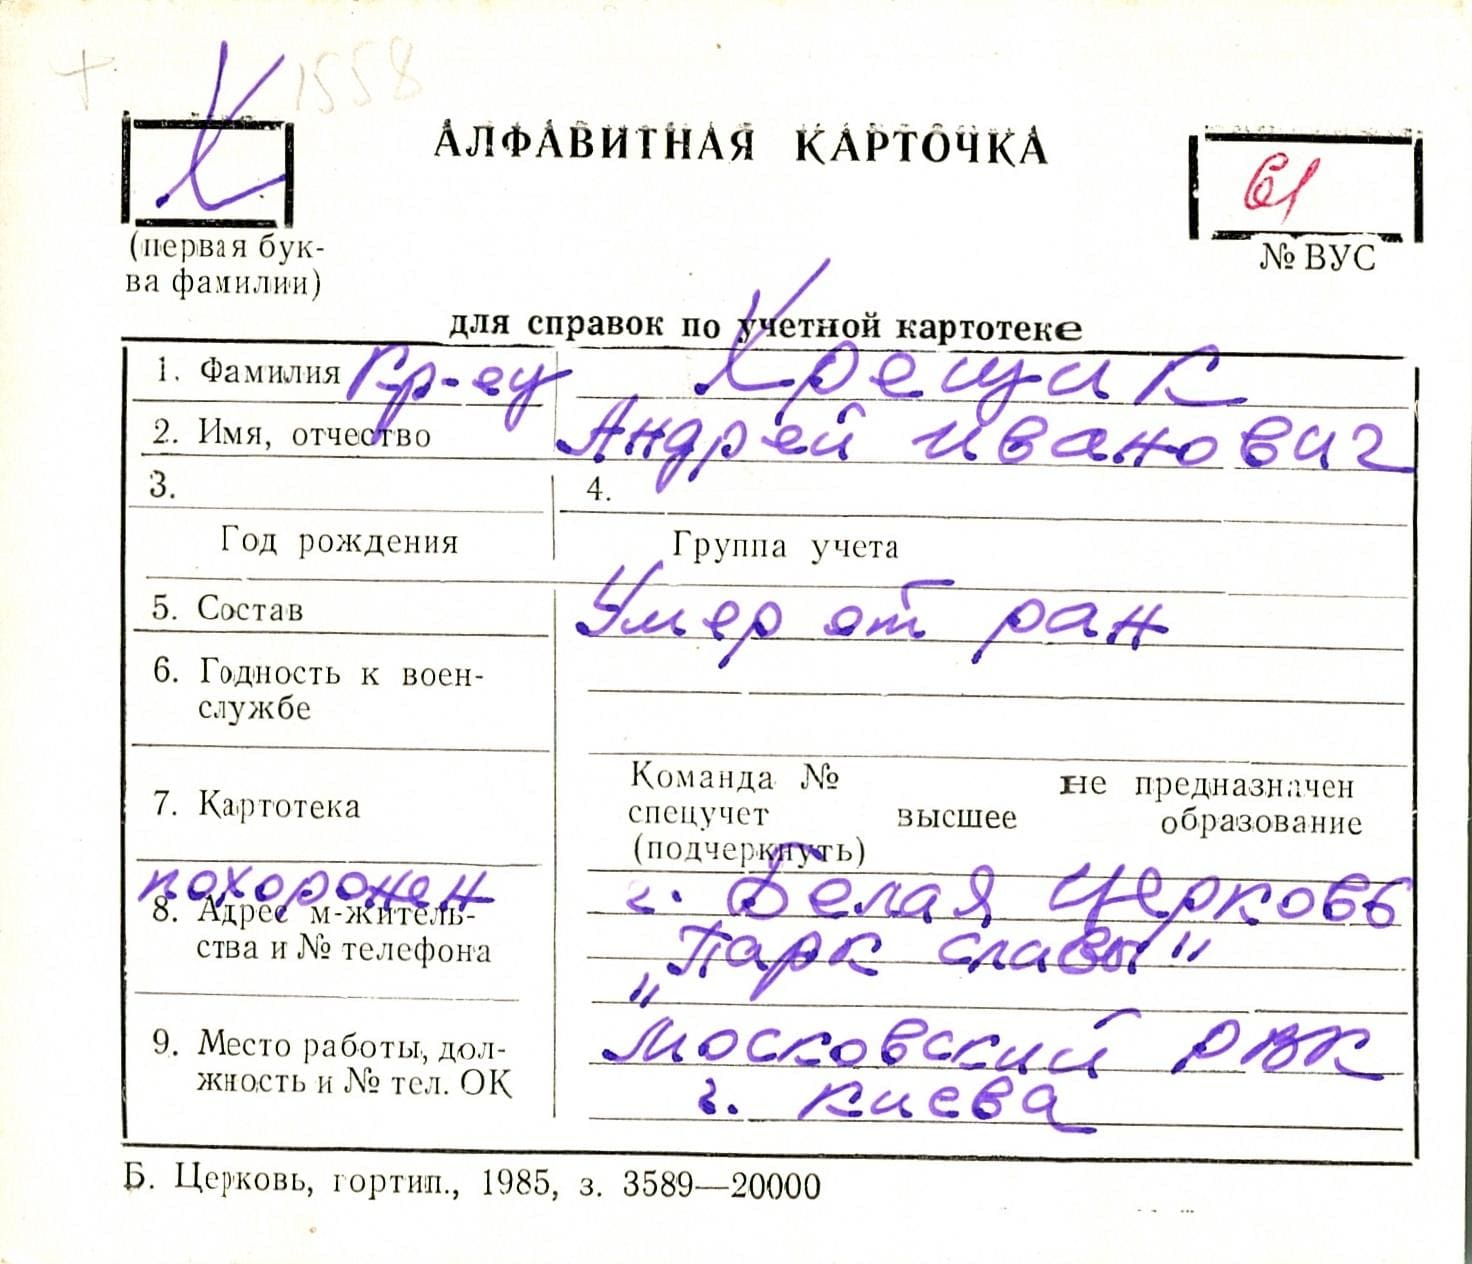 + 1558
Х
АЛФАВИТНАЯ КАРТОЧКА
61
(первая бук-
ва фамилии)
№ ВУС
для справок по учетной картотеке
1. Фамилия кр-ец Хрещик
2. Имя, отчество Андрей Иванович
3. 4.
Год рождения Группа учета
5. Состав Умер от ран
6. Годность к воен-
службе
7. Картотека
Команда № не предназначен
спецучет высшее образование
(подчеркнуть)
похоронен г. Белая Церковь
8. Адрес м-житель-
ства и № телефона
„Парк славы"
9. Место работы, дол-
жность и № тел. ОК
Московский РВК
г. Киева
Б. Церковь, гортип., 1985, з. 3589—20000